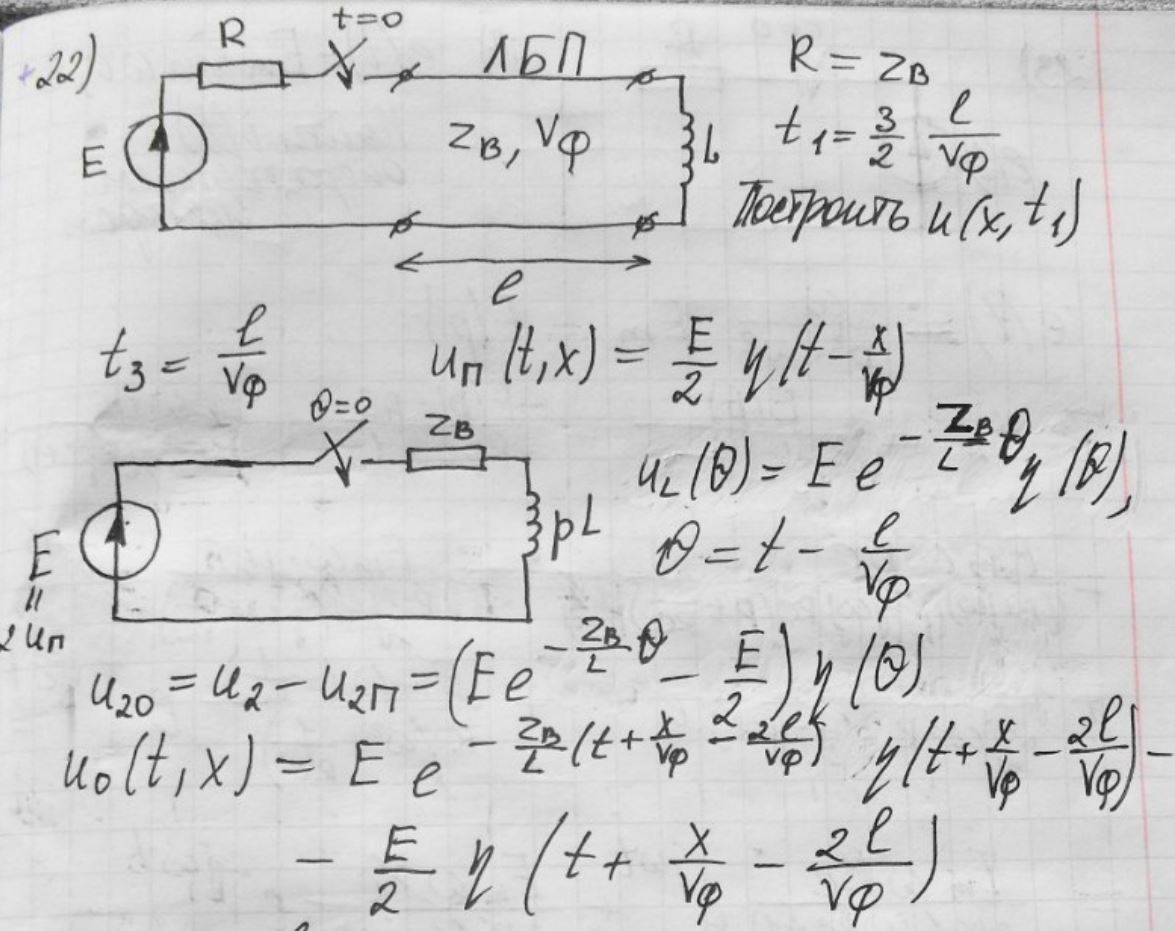 22)
R t=0 ЛБП R = Zв
E Zв, Vφ L t₁ = 3/2 l/Vφ
Построить u(x, t₁)
l
t₃ = l/Vφ uп (t, x) = E/2 η(t - x/Vφ)
θ=0 Zв u_L(θ) = E e^(-Zв/L θ) η(θ),
E pL θ = t - l/Vφ
"
2uп
u₂₀ = u₂ - u₂п = (E e^(-Zв/L θ) - E/2) η(θ)
u₀(t, x) = E e^(-Zв/L (t + x/Vφ - 2l/Vφ)) η(t + x/Vφ - 2l/Vφ) -
- E/2 η (t + x/Vφ - 2l/Vφ)